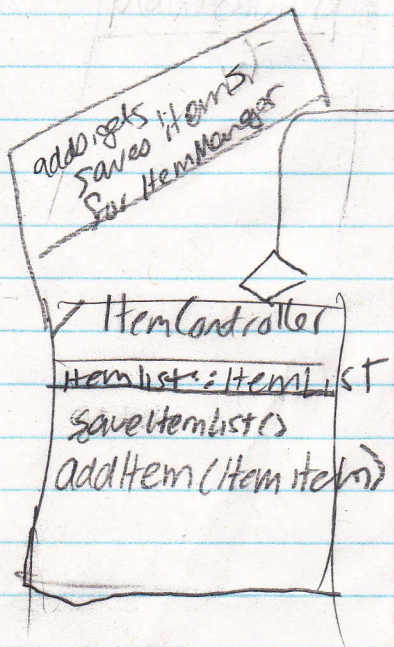 adds, gets
saves items,
for ItemManger
ItemController
itemlist::ItemList
saveItemList()
addItem(Item item)